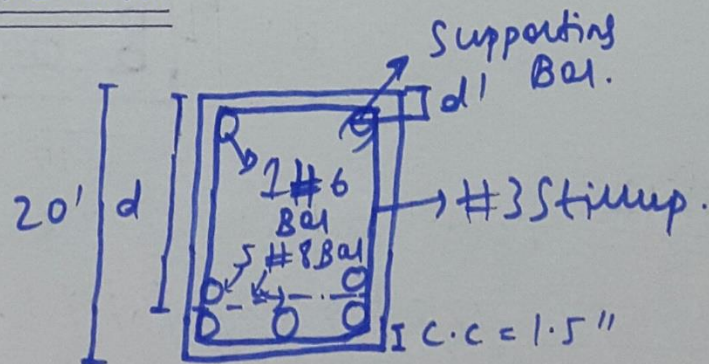 Supporting
Bar.
d'
20' d
2#6
Bar
#3 Stirrup.
5 #8 Bar
C.C = 1.5"